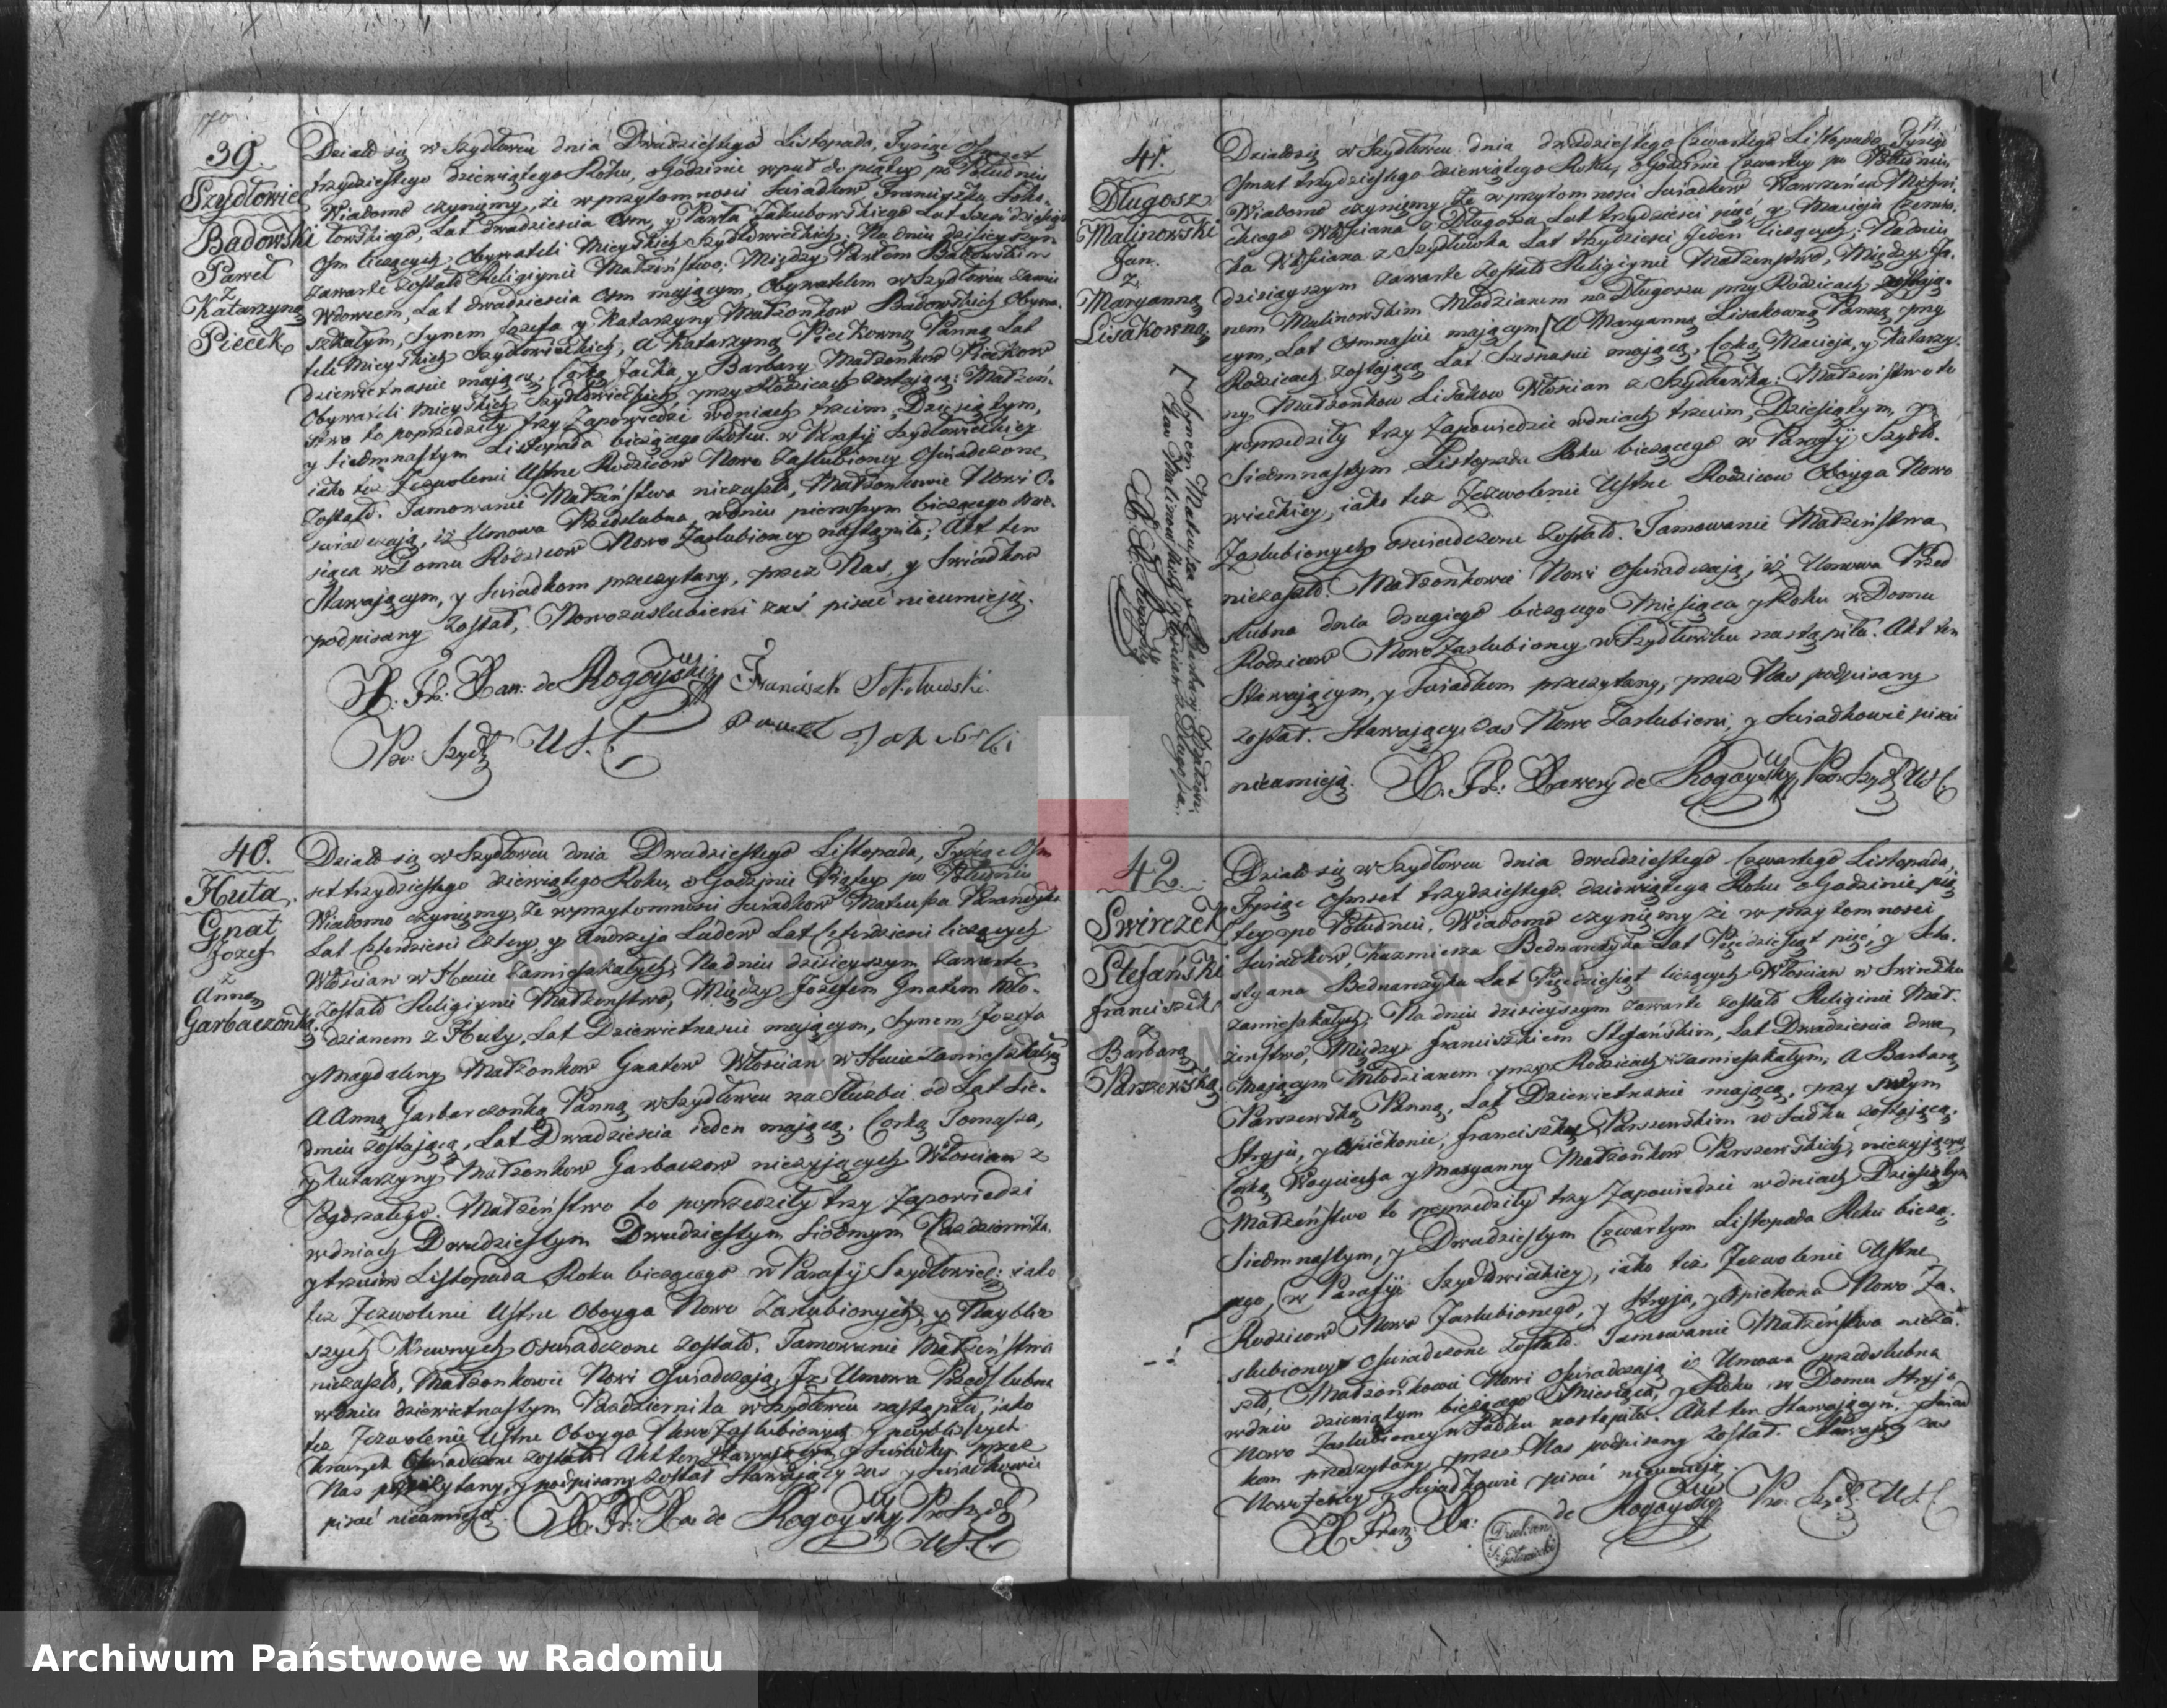 39.
Szydłowiec
Badowski
Paweł
z
Katarzyną
Piecek
Działo się w Szydłowcu dnia Dwudziestego Listopada, Tysiąc Osmset
trzydziestego dziewiątego Roku, o Godzinie wpuł do piątey po Południu
Wiadomo czynimy, że w przytomności Swiadków Franciszka Soko-
łowskiego, Lat dwadzieścia Osm, y Pawła Jakubowskiego Lat
Osm liczących; Obywateli Mieyskich Szydłowieckich; Na dniu dzisieyszym
zawarte zostało Religiynie Małżeństwo; Między Pawłem Badowskim
Wdowcem, Lat dwadzieścia Osm mającym, Obywatelem w Szydłowcu zamie-
szkałym, Synem Józefa y Katarzyny Małżonków Badowskich Obywa-
teli Mieyskich Szydłowieckich, a Katarzyną Pieckowną Panną Lat
dziewietnaście mającą, Corką Jacka y Barbary Małżonków Piecków
Obywateli Mieyskich Szydłowieckich, przy Rodzicach zostającą: Małżeń-
stwo to poprzedziły trzy Zapowiedzi w dniach trzecim, Dziesiątym,
y Siedmnastym Listopada bieżącego Roku w Parafij Szydłowieckiey
iako też Zezwolenie Ustne Rodziców Nowo Zaślubioney Oświadczone
Zostało. Tamowanie Małżeństwa niezaszło, Małżonkowie Nowi O-
świadczają, iż Umowa Przedslubna w dniu pierwszym bieżącego Mie-
siąca w Domu Rodziców Nowo Zaślubioney nastąpiła; Akt ten
Stawającym, y Swiadkom przeczytany, przez Nas, y Swiadków
podpisany został, Nowozaslubieni zaś pisać nieumieją.
X. Fr: Xaw: de Rogoyski Franciszek Sokołowski
Pr: Szydł U.S.C. Paweł Jakubowski
40.
Huta
Gnat
Jozef
z
Anną
Garbaczonką
Działo się w Szydłowcu dnia Dwudziestego Listopada, Tysiąc Osm
set trzydziestego dziewiątego Roku, o Godzinie Piątey po Południu
Wiadomo czynimy, że w przytomności Swiadków Mateusza
Lat Czterdzieści Cztery, y Andrzeja Ludew Lat Czterdzieści liczących
Włościan w Hucie zamieszkałych; Na dniu dzisieyszym zawarte
zostało Religiynie Małżeństwo, Między Jozefem Gnatem Mło-
dzianem z Huty, Lat Dziewietnaście mającym, Synem Jozefa
y Magdaleny Małżonków Gnatów Włościan w Hucie zamieszkałych
A Anną Garbarczonką Panną w Szydłowcu na Służbie od Lat Sie-
dmiu zostającą, Lat Dwadzieścia ieden mającą, Corką Tomasza,
y Katarzyny Małżonków Garbaczów nieżyjących Włościan z
Małżeństwo to poprzedziły trzy Zapowiedzi
w dniach Dwudziestym Dwudziestym siódmym Pazdziernika
y trzecim Listopada Roku bieżącego w Parafij Szydłowiec: iako
też Zezwolenie Ustne Oboyga Nowo Zaślubionych, y Naybliż
szych Krewnych Oświadczone zostało. Tamowanie Małżeństwa
niezaszło, Małżonkowie Nowi Oświadczają, Iż Umowa Przedślubna
w dniu dziewietnastym Pazdziernika w Szydłowcu nastąpiła, iako
też Zezwolenie Ustne Oboyga Nowo Zaślubionych y naybliższych
krewnych Oświadczone zostało. Akt ten Stawającym y Swiadkom przez
Nas przeczytany, y podpisany został Stawający zaś y Swiadkowie
pisać nieumieją. X. Fr: Xa de Rogoyski Pr. Szydł
U.S.C.
41.
Długosz
Malinowski
Jan.
z
Maryanną
Lisakowną
Synem Mateusza y Barbary
Małżonków Malinowskich Włościan z Długosza.
X. F. X. Rogoyski
Działo się w Szydłowcu dnia dwudziestego Czwartego Listopada Tysiąc
Osmset trzydziestego dziewiątego Roku, o Godzinie Czwartey po Południu
Wiadomo czynimy że w przytomności Swiadków Wawrzeńca
Włościana z Długosza Lat trzydzieści pięć, y Macieja
Włościana z Szydłówka Lat trzydzieści jeden liczących; Na dniu
dzisieyszym zawarte zostało Religiynie Małżeństwo, Między Ja-
nem Malinowskim Młodzianem na Długoszu przy Rodzicach zostają-
cym, Lat Osmnaście mającym / A Maryanną Lisakowną Panną, przy
Rodzicach zostającą Lat Szesnaście mającą, Corką Macieja, y Katarzy-
ny Małżonków Lisaków Włościan z Szydłówka: Małżeństwo to
poprzedziły trzy Zapowiedzie w dniach trzecim, Dziesiątym, y
Siedmnastym Listopada Roku bieżącego w Parafij Szydło-
wieckiey, iako też Zezwolenie Ustne Rodziców Oboyga Nowo
Zaślubionych oświadczone zostało. Tamowanie Małżeństwa
niezaszło. Małżonkowie Nowi Oświadczają, iż Umowa Przed-
slubna dnia drugiego bieżącego Miesiąca y Roku w Domu
Rodziców Nowo Zaślubioney w Szydłówku nastąpiła. Akt ten
Stawającym, y Swiadkom przeczytany, przez Nas podpisany
został. Stawający zaś Nowo Zaslubieni, y Swiadkowie pisać
nieumieją. X. Fr: Xawery de Rogoyski Pr: Szydł. U.S.C.
42.
Swirczek
Stefański
Franciszek
z
Barbarą
Parszewską
Działo się w Szydłowcu dnia dwudziestego Czwartego Listopada,
Tysiąc Osmset trzydziestego dziewiątego Roku o Godzinie pią
tey po Południu. Wiadomo czyniemy że w przytomności
Swiadków, Kazimierza Bednarczyka Lat Pięcdziesiąt pięć, y Seba-
styana Bednarczyka Lat Pięcdziesiąt liczących Włościan w Swirczku
zamieszkałych; Na dniu dzisieyszym zawarte zostało Religinie Mał-
żeństwo, Między Franciszkiem Stefańskim, Lat Dwadzieścia dwa
mającym Młodzianem przy Rodzicach zamieszkałym, A Barbarą
Parszewską Panną, Lat Dziewietnaście mającą, przy swym
Stryju, y Opiekonie, Franciszku Parszewskim w Sadku zostającą,
Corką Woyciecha y Maryanny Małżonków Parszewskich, nieżyjących
Małżeństwo to poprzedziły trzy Zapowiedzie w dniach Dziesiątym
Siedmnastym, y Dwudziestym Czwartym Listopada Roku bieżą-
cego, w Parafij Szydłowieckiey, iako też Zezwolenie Ustne
Rodziców Nowo Zaślubionego, y Stryja, y Opiekona Nowo Za-
slubioney Oświadczone zostało. Tamowanie Małżeństwa nieza-
szło, Małżonkowie Nowi Oświadczają iż Umowa przedslubna
w dniu dziewiątym bieżącego Miesiąca, y Roku w Domu Stryja
Nowo Zaślubioney w Sadku nastąpiła. Akt ten Stawającym, y Swiad
kom przeczytany przez Nas podpisany został. Stawający zaś
Nowożency y Swiadkowie pisać nieumieją.
X Fran: Xa: de Rogoyski Pr: Szydł: U.S.C.
Dziekan
Szydłowiecki
ARCHIWUM PAŃSTWOWE
W RADOMIU
Archiwum Państwowe w Radomiu